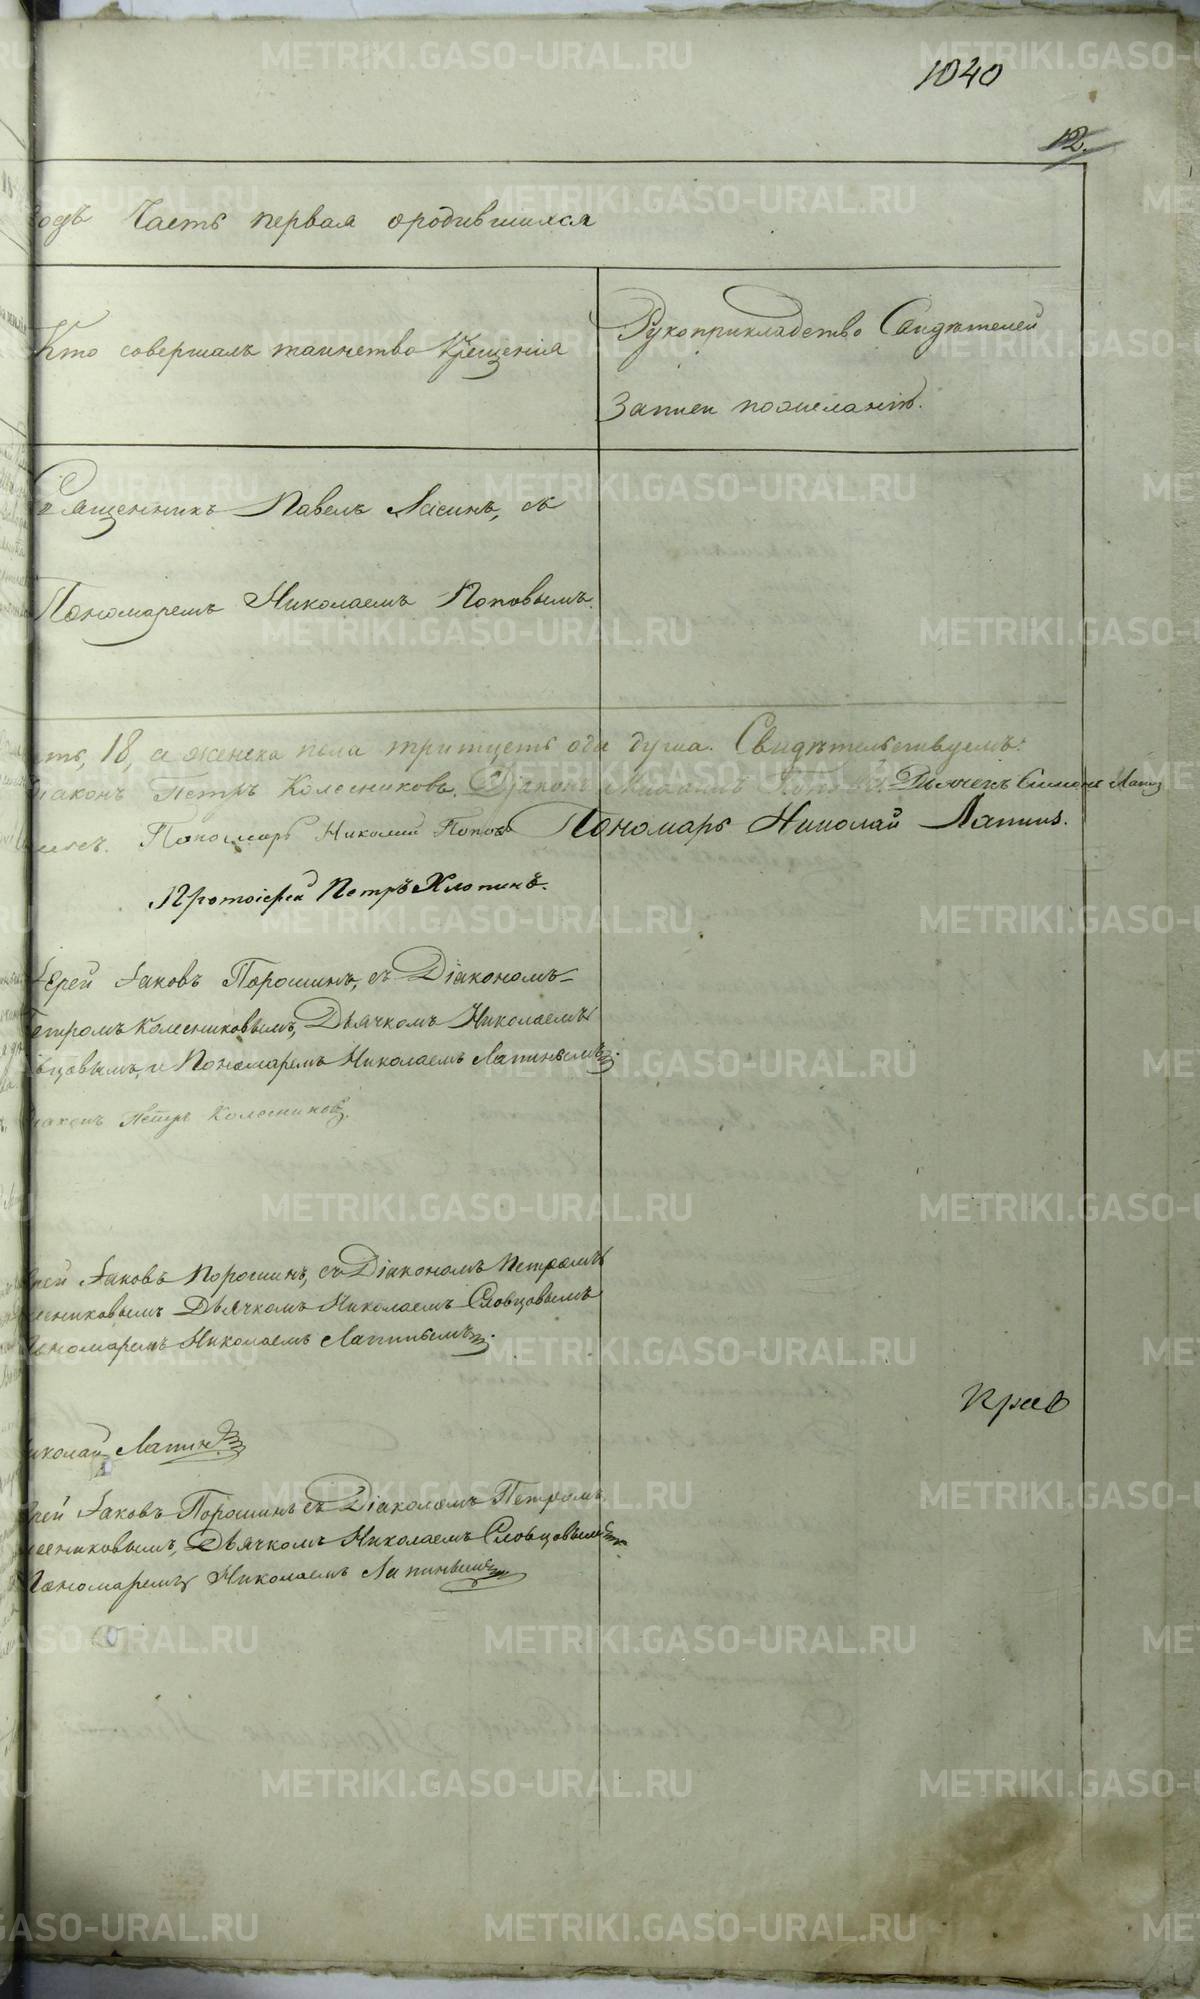 1040
12.
годъ Часть первая о родившихся
Кто совершалъ таинство крещенія
Рукоприкладство Свидѣтелей
Записи по желанію.
Священникъ Павелъ Ласинъ, съ
Пономаремъ Николаемъ Поповымъ.
18, а женска пола тритцеть одна душа. Свидѣтельствуемъ:
Діаконъ Петръ Колесниковъ. Діаконъ Дьячекъ Симонъ
Пономарь Николай Поповъ Пономарь Николай Лапинъ.
Протоіерей Петръ Хлопинъ.
Іерей Іаковъ Порошинъ, съ Діакономъ
Петромъ Колесниковымъ, Дьячкомъ Николаемъ
и Пономаремъ Николаемъ Лапинымъ.
Діаконъ Петръ Колесниковъ.
Іерей Іаковъ Порошинъ, съ Діакономъ Петромъ
Дьячкомъ Николаемъ Словцовымъ
Пономаремъ Николаемъ Лапинымъ.
Николай Лапинъ
Іерей Іаковъ Порошинъ съ Діакономъ Петромъ
Дьячкомъ Николаемъ Словцовымъ
Пономаремъ Николаемъ Лапинымъ
METRIKI.GASO-URAL.RU